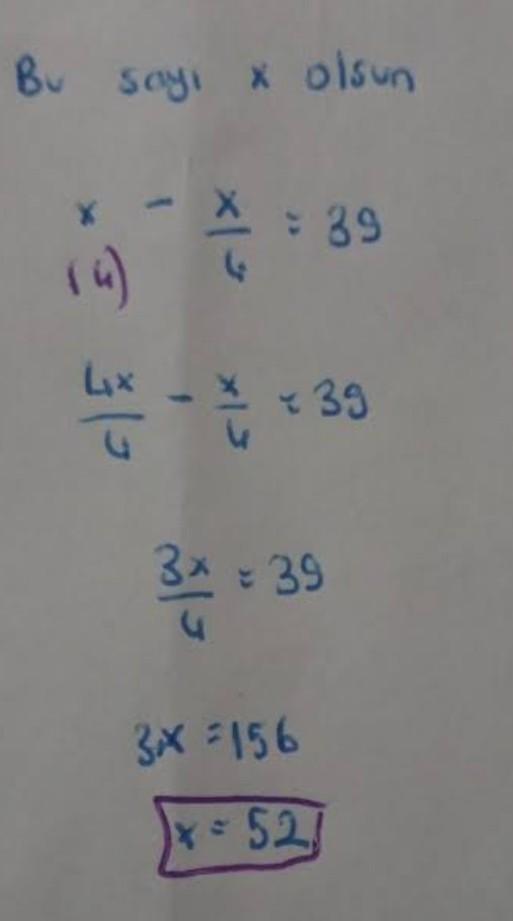 Bu sayı x olsun
x - x/4 = 39
(4)
4x/4 - x/4 = 39
3x/4 = 39
3x = 156
x = 52